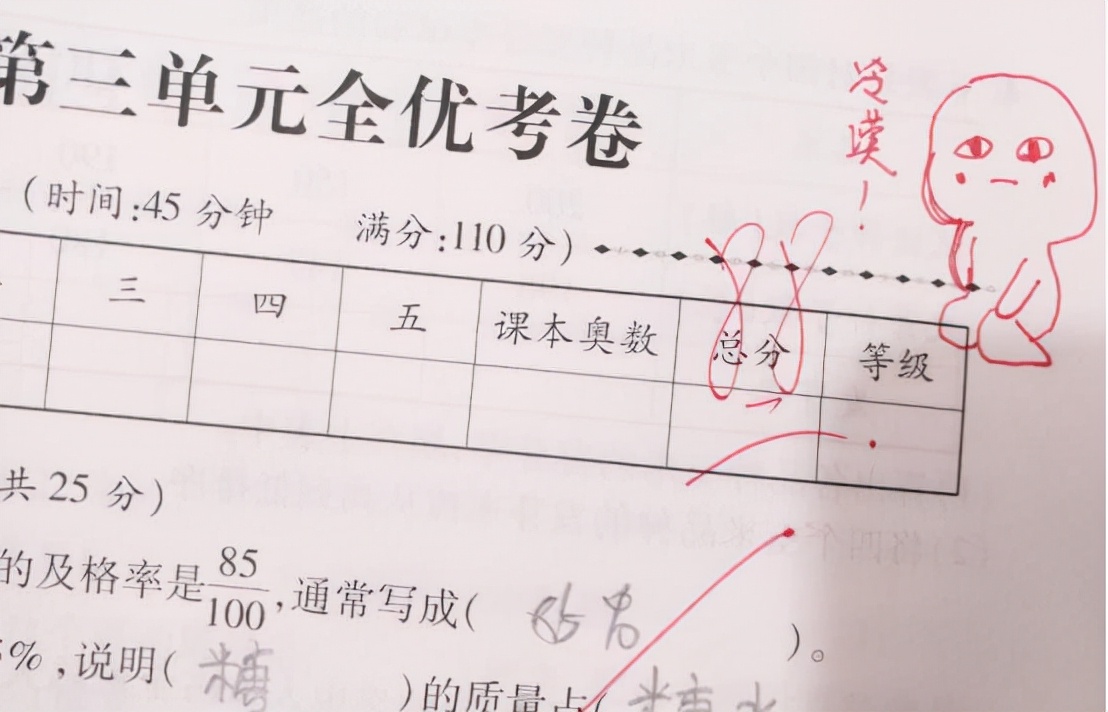 第三单元全优考卷
冷漠!
(时间:45分钟 满分:110分)
88
三 四 五 课本奥数 总分 等级
共25分)
的及格率是85/100,通常写成( 85% )。
%,说明( 糖 )的质量占( 糖水